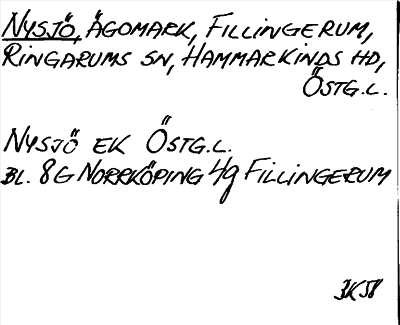 NYSJÖ, ÄGOMARK, FILLINGERUM,
RINGARUMS SN, HAMMARKINDS HD,
ÖSTG.L.
NYSJÖ EK ÖSTG.L.
BL. 8G NORRKÖPING 4g FILLINGERUM